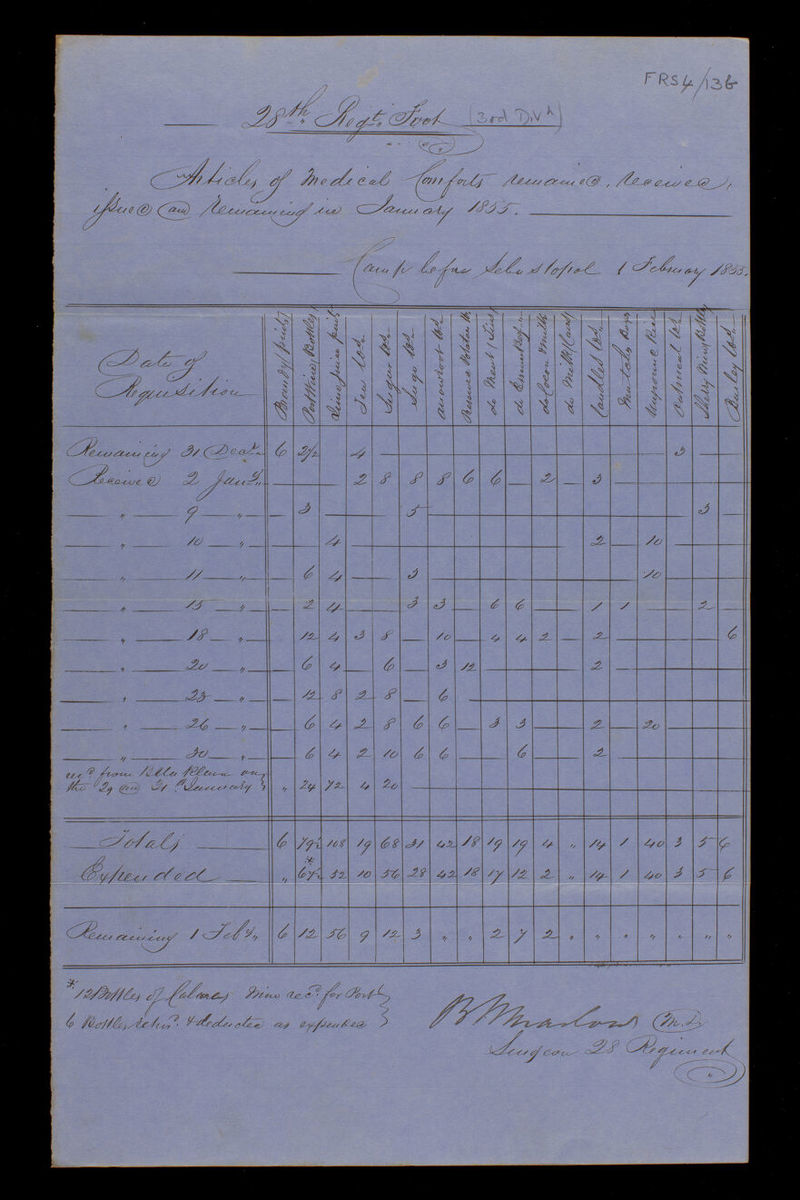 FRS4/13b
28th Regt. Foot (3rd Divn)
Articles of Medical Comforts remained, received,
issued and remaining in January 1855.
Camp before Sebastopol 1 February 1855.
Date of Requisition | Brandy pints | Port Wine Bottles | Lime juice pints | Tea lbs | Sugar lbs | Sago lbs | Arrowroot lbs | Preserved Potatoe lbs | do Meat | do | do Cocoa & milk | do Milk | Candles lbs | Matches Boxes | Rice | Oatmeal lbs | Sherry Wine Bottles | Barley lbs
Remaining 31 Decr. 6 2½ 4 3
Received 2 Jany. 2 8 8 8 6 6 2 3
" 9 " 3 5 3
" 10 " 4 2 10
" 11 " 6 4 3 10
" 15 " 2 4 3 3 6 6 1 1 2
" 18 " 12 4 3 8 10 4 4 2 2 6
" 20 " 6 4 6 3 12 2
" 23 " 12 8 2 8 6
" 26 " 6 4 2 8 6 6 3 3 2 20
" 30 " 6 4 2 10 6 6 6 2
recd. from Balaklava on
the 29 and 31st January } " 24 72 4 20
Totals 6 79½ 108 19 68 31 42 18 19 19 4 " 14 1 40 3 5 6
Expended " *67½ 52 10 56 28 42 18 17 12 2 " 14 1 40 3 5 6
Remaining 1 Feby. 6 12 56 9 12 3 " " 2 7 2 " " " " " " "
* 12 Bottles of Wine recd. for Port
6 Bottles retd. & deducted as expended
Marlow M.D.
Surgeon 28 Regiment